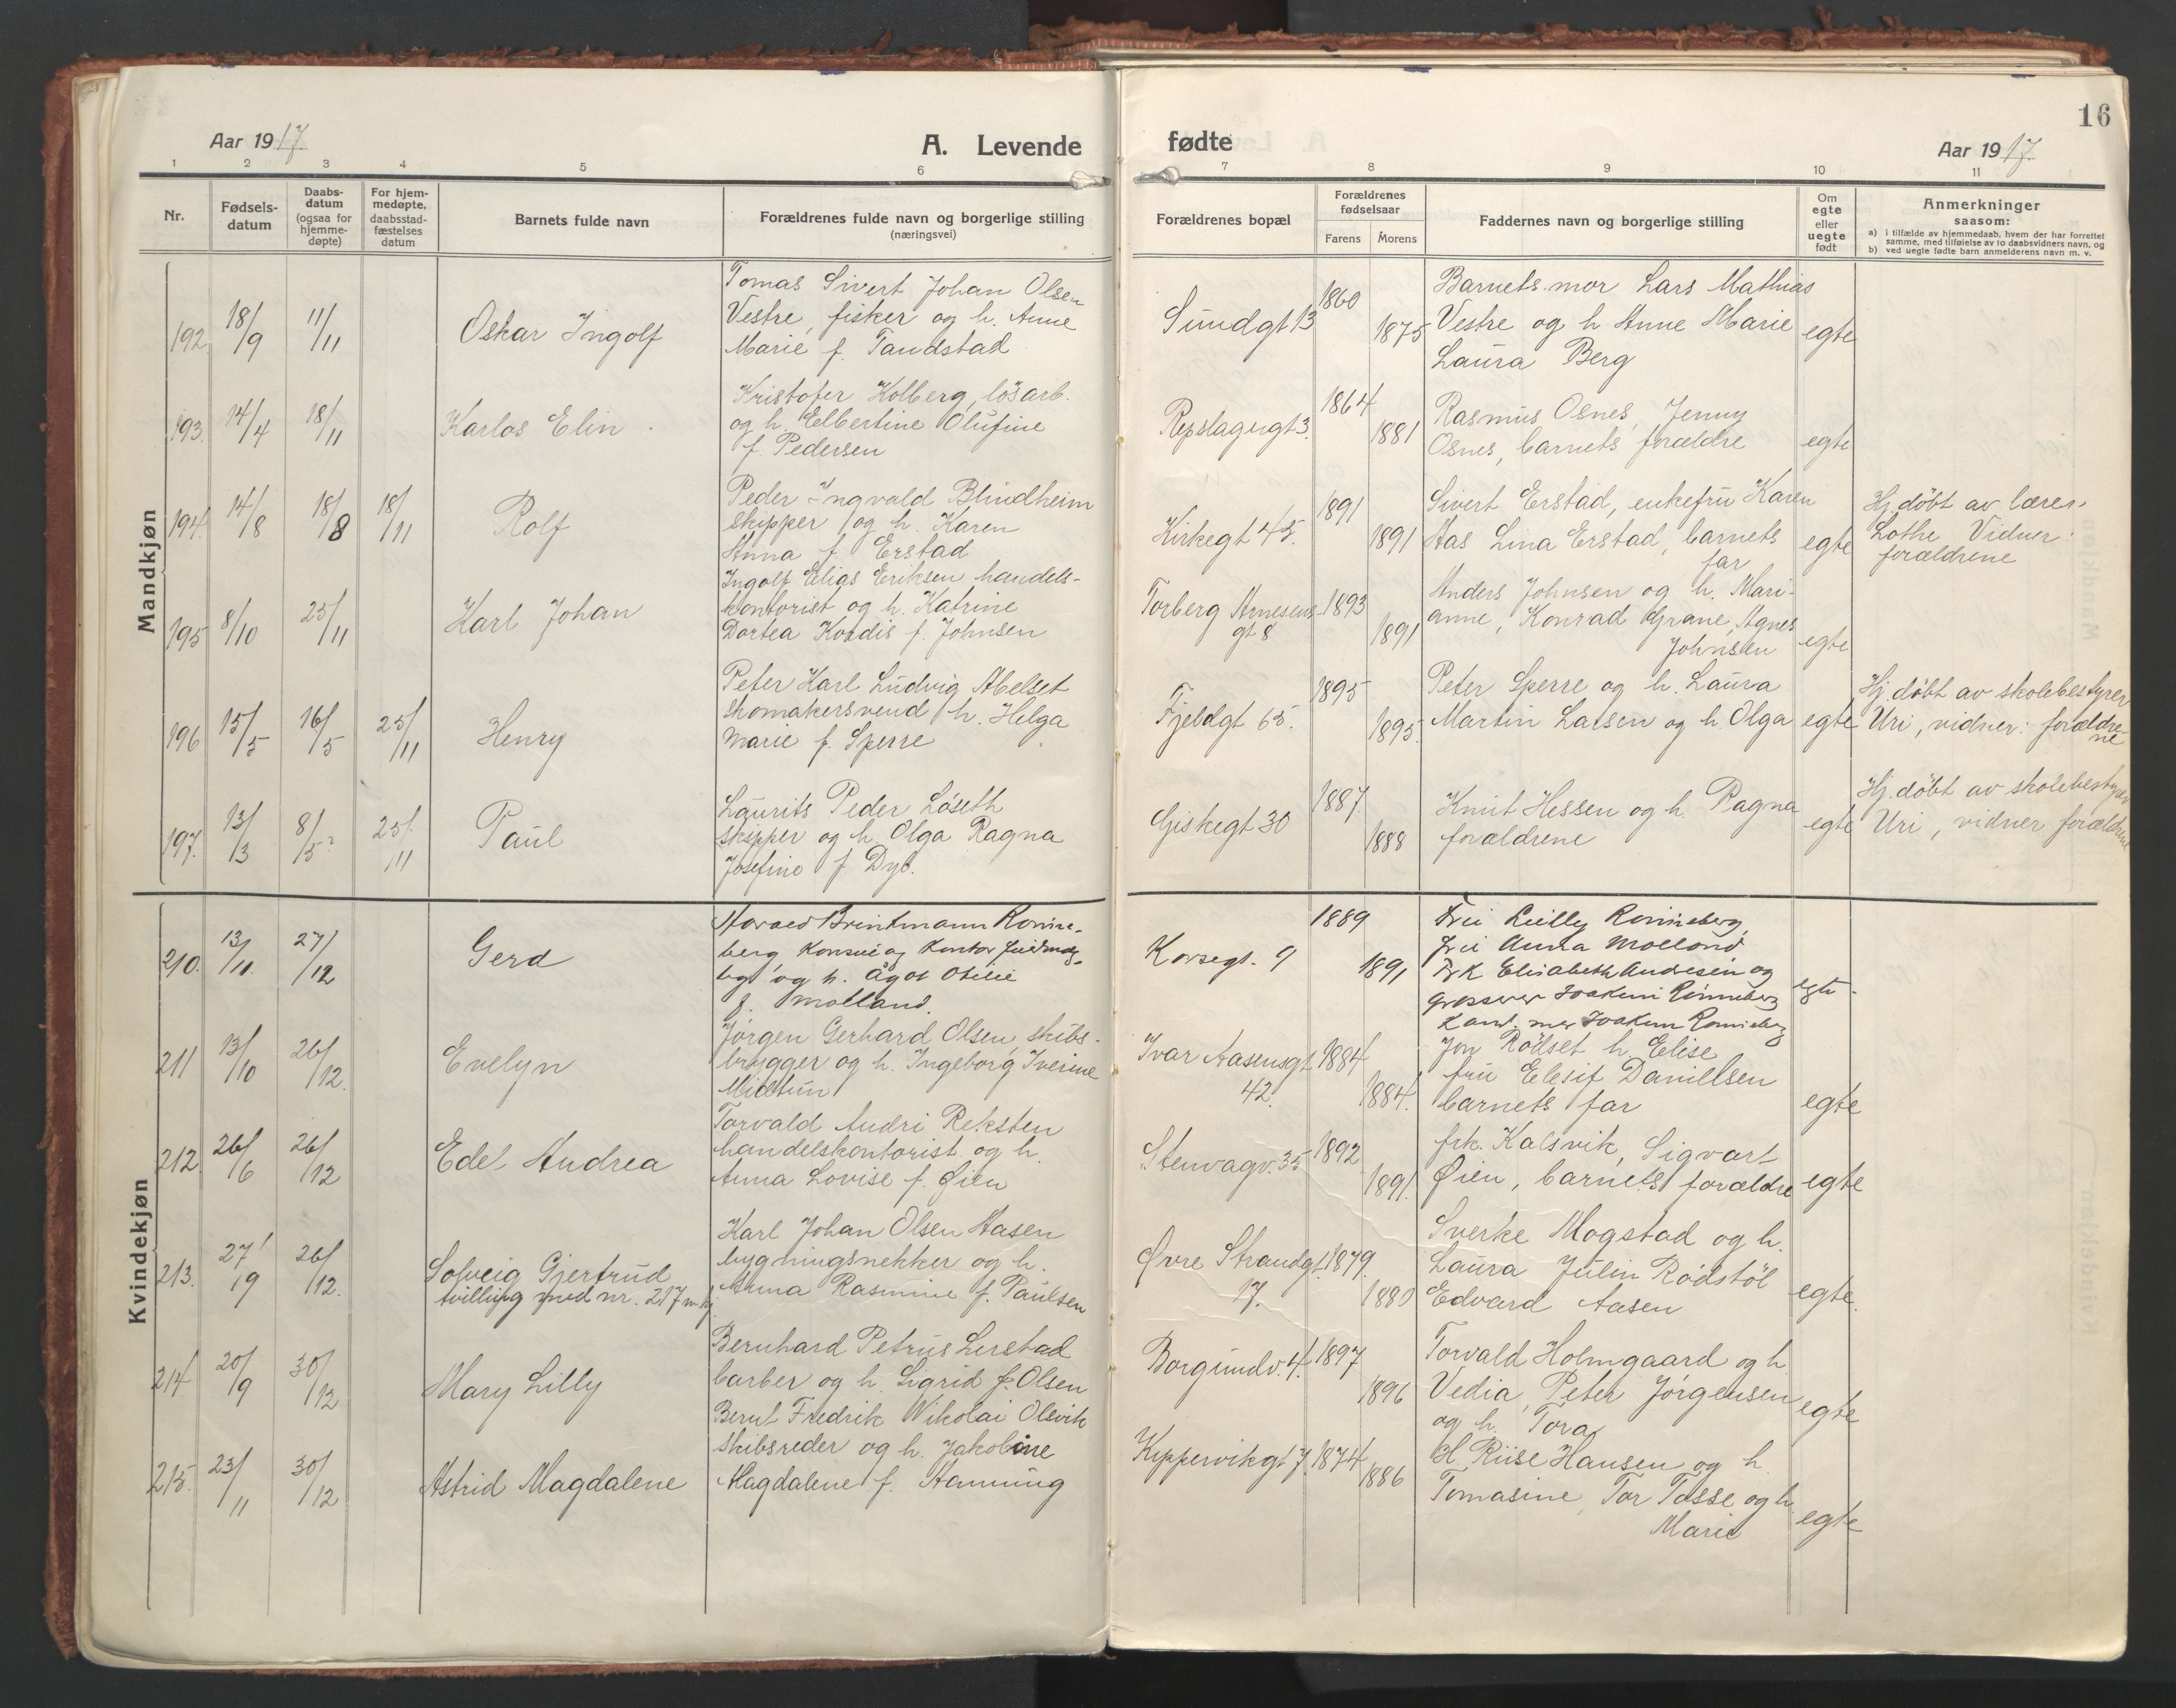 16
Aar 1917.
A. Levende
fødte
Aar 1917.
1 2 3 4 5 6 7 8 9 10 11
Nr.
Fødsels-
datum
Daabs-
datum
(ogsaa for
hjemme-
døpte)
For hjem-
medøpte,
daabsstad-
fæstelses
datum
Barnets fulde navn
Forældrenes fulde navn og borgerlige stilling
(næringsvei)
Forældrenes bopæl
Forældrenes
fødselsaar
Farens Morens
Faddernes navn og borgerlige stilling
Om
egte
eller
uegte
født
Anmerkninger
saasom:
a) i tilfælde av hjemmedaab, hvem der har forrettet
samme, med tilføielse av to daabsvidners navn, og
b) ved uegte fødte barn anmelderens navn m. v.
Mandkjøn
192 18/9 11/11
Oskar Ingolf
Tomas Sivert Johan Olsen
Vestre, fisker og h. Anne
Marie f. Tandstad
Sundgt 13
1860
1875
Barnets mor Lars Mathias
Vestre og h Anne Marie
Laura Berg
egte
193. 14/4 18/11
Karlos Elin
Kristofer Kolberg, løsarb.
og h. Elbertine Olufine
f. Pedersen
Repslagergt 3.
1864
1881
Rasmus Osnes, Jenny
Osnes, barnets forældre
egte
194. 14/8 18/8 18/11
Rolf
Peder Ingvald Blindheim
skipper og h. Karen
Anna f. Erstad
Kirkegt 45.
1891
1891
Sivert Erstad, enkefru Karen
Aas Lina Erstad, barnets
far
egte
Hj. döbt av lærer
Lothe Vidner:
forældrene
195 8/10 25/11
Karl Johan
Ingolf Elias Eriksen handels-
kontorist og h. Katrine
Dortea Kordis f. Johnsen
Torberg Arnesens
gt 8
1893
1891
Anders Johnsen og h. Mari-
anne, Konrad Grane, Agnes
Johnsen
egte
196 15/5 16/5 25/11
Henry
Peter Karl Ludvig Abelset
skomakersvend h. Helga
Marie f. Sperre
Fjeldgt 65.
1895
1895.
Peter Sperre og h. Laura
Martin Larsen og h. Olga
egte
Hj. döbt av skolebestyrer
Uri, vidner: forældre-
ne
197. 13/3 8/5 25/11
Paul
Laurits Peder Löseth
skipper og h. Olga Ragna
Josefine f Dyb.
Giskegt 30
1887.
1888
Knut Hessen og h. Ragna
forældrene
egte
Hj. döbt av skolebestyrer
Uri, vidner forældrene
Kvindekjøn
210. 13/11. 27/12
Gerd
Brinkmann Ronne-
berg Konsul og
og h. Ågot Otilie
f. Molland.
Korsegt. 9
1889
1891
Fru Lilly Rönneberg,
fru Anna Molland
Frk Elisabeth Andresen og
Grosserer Joakim Rönneberg
Joakim Ronneberg
egte
211 13/10 26/12.
Evelyn
Jörgen Gerhard Olsen skibs-
brygger og h. Ingeborg Iverine
Midttun
Ivar Aasensgt
42.
1884
1884.
Jon Rödset h Elise
fru Elesif Danillsen
barnets far
egte
212. 26/6 26/12
Edel Andrea
Torvald Andri Reksten
handelskontorist og h.
Anna Lovise f. Øien
Stenvagv. 35
1892
1891.
frk. Kalsvik, Sigvart
Øien, barnets forældre
egte
213. 27/9 26/12.
Solveig Gjertrud
tvilling med nr. 217 m.kj.
Karl Johan Olsen Aasen
bygningsnekker og h.
Anna Rasmine f. Paulsen
Øvre Strandgt.
17.
1879.
1880
Sverke Mogstad og h.
Laura Julin Rödstöl
Edvard Aasen
egte.
214. 20/9 30/12
Mary Lilly
Bernhard Petrus Lerstad
barber og h. Sigrid f. Olsen
Borgundv. 4.
1897
1896
Torvald Holmgaard og h
Vedia, Peter Jörgensen
og h. Tora
egte
215. 23/11 30/12
Astrid Magdalene
Bernt Fredrik Nikolai Olsvik
skibsreder og h. Jakobine
Magdalene f. Hanning
Kippervikgt 7.
1874
1886
H. Riise Hansen og h.
Tomasine, Tor Tosse og h.
Marie
egte